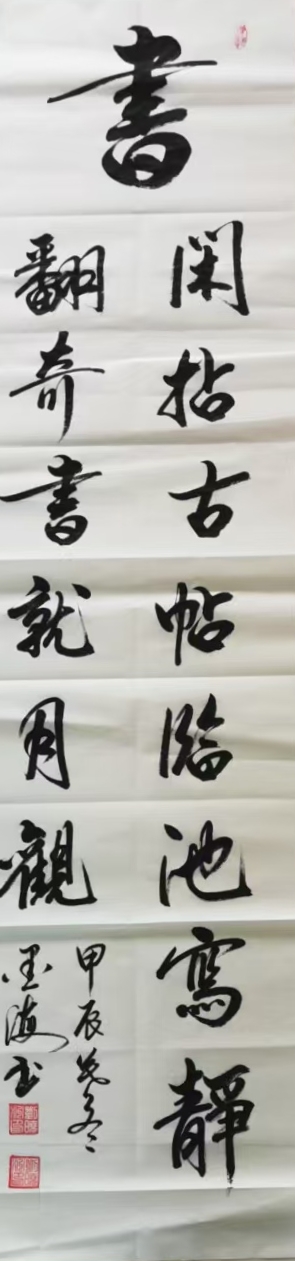 書
閑拈古帖臨池寫
靜翻奇書就月觀
甲辰 冬
墨海书